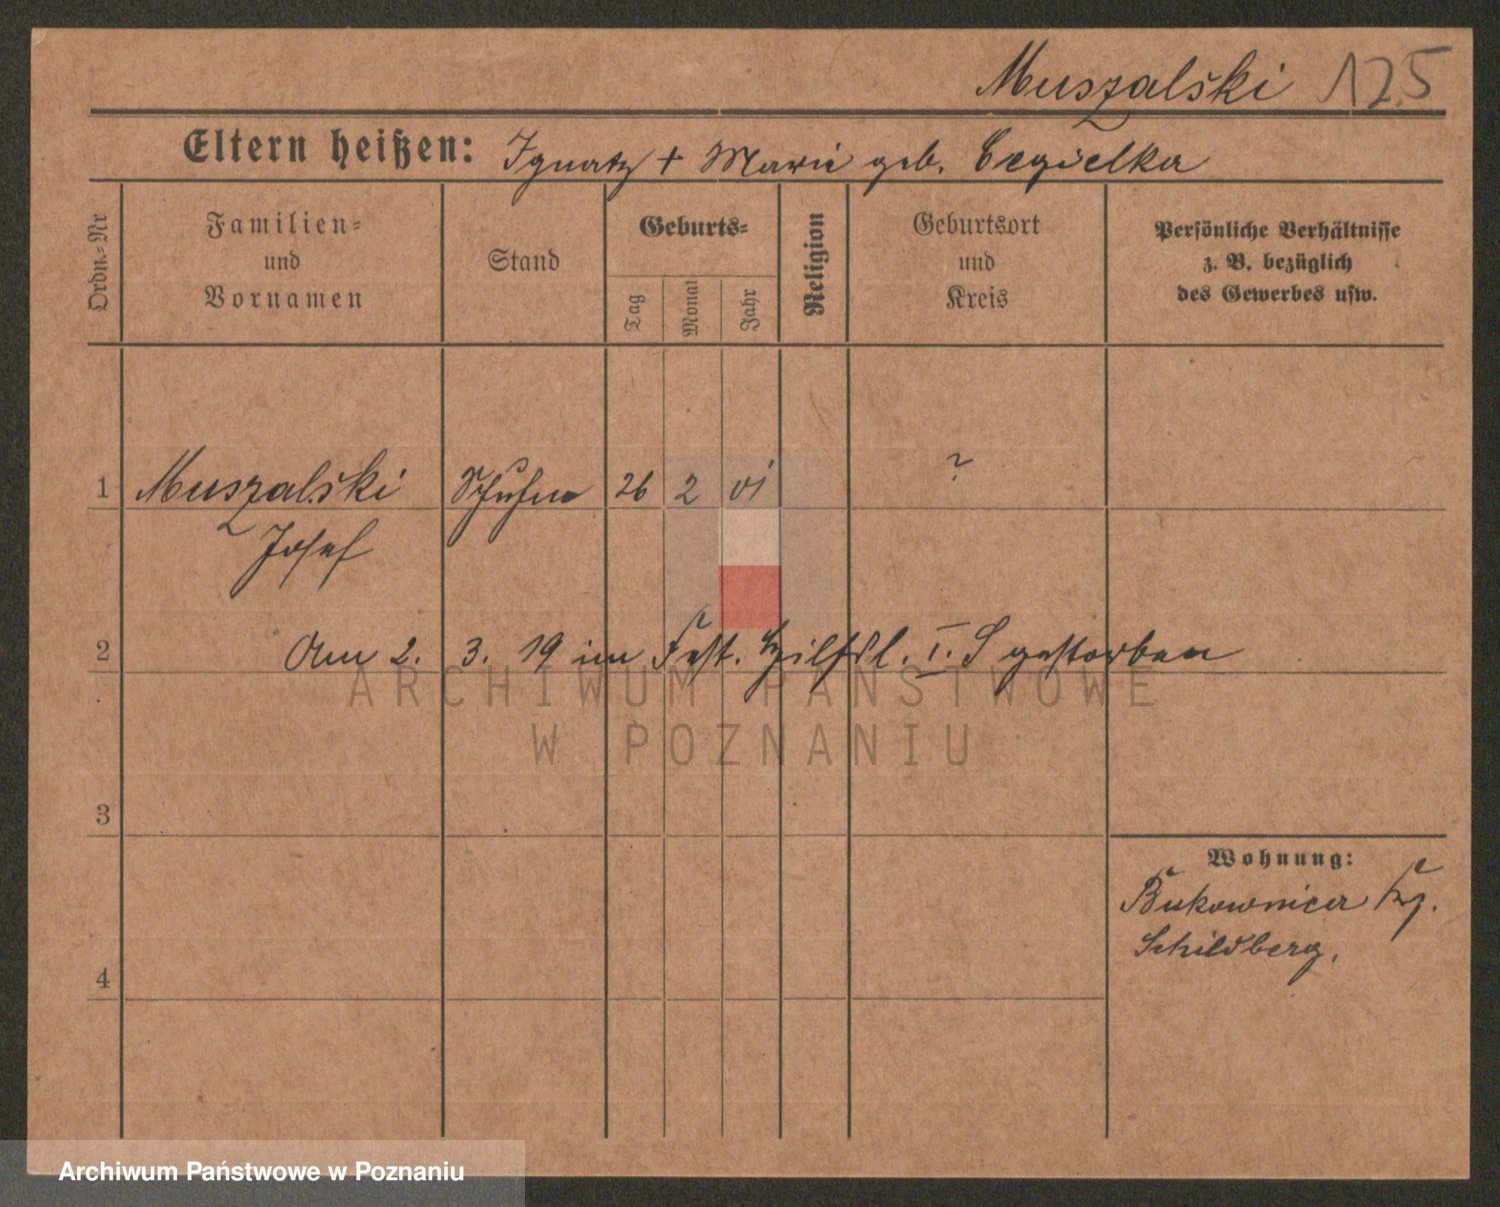 Muszalski 125
Eltern heißen: Ignatz + Marie geb. Cegielka
Ordn.-Nr
Familien-
und
Vornamen
Stand
Geburts-
Tag
Monat
Jahr
Religion
Geburtsort
und
Kreis
Persönliche Verhältnisse
z. B. bezüglich
des Gewerbes usw.
1 Muszalski 26 2 01 ?
Josef
2 Am 2. 3. 19 im Fest. I. S gestorben
ARCHIWUM PAŃSTWOWE
W POZNANIU
3
Wohnung:
Bukownica
Schildberg.
4
Archiwum Państwowe w Poznaniu